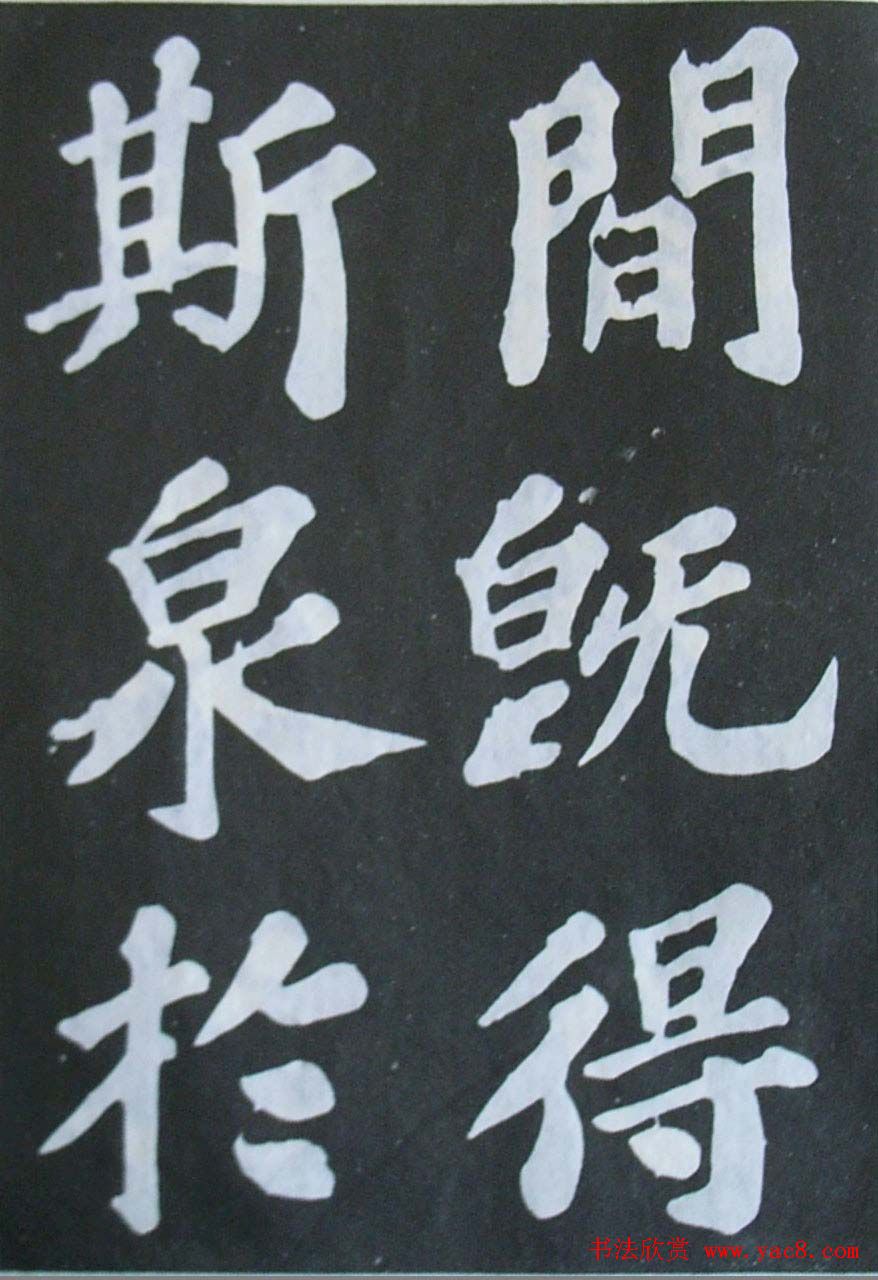 間既得
斯泉於
书法欣赏 www.yac8.com